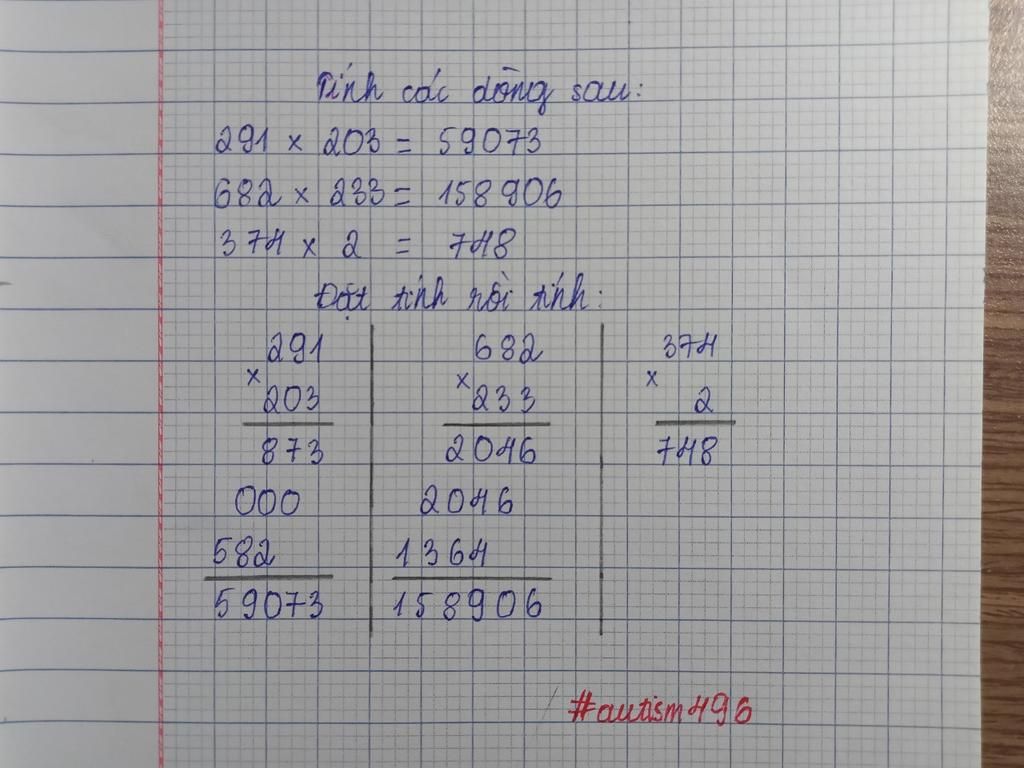 Tính các dòng sau:
291 × 203 = 59073
682 × 233 = 158906
374 × 2 = 748
Đặt tính rồi tính:
291
×
203
873
000
582
59073
682
×
233
2046
2046
1364
158906
374
×
2
748
#autism496